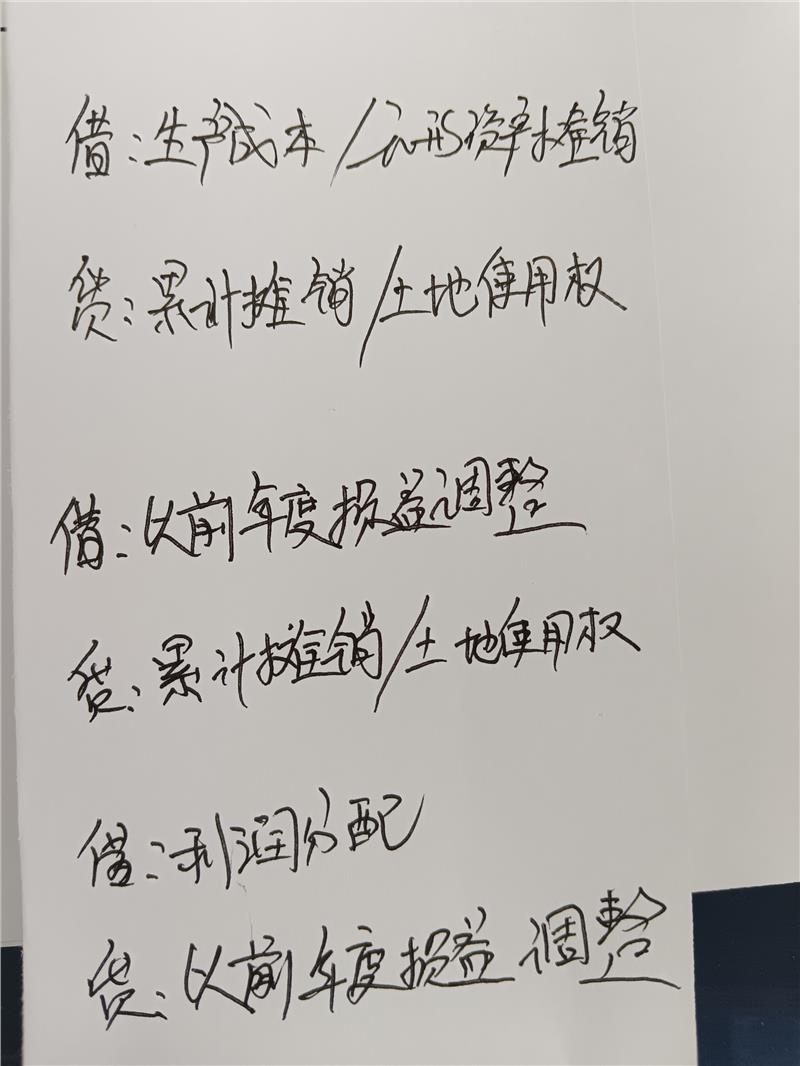 借：生产成本/无形资产摊销
贷：累计摊销/土地使用权
借：以前年度损益调整
贷：累计摊销/土地使用权
借：利润分配
贷：以前年度损益调整